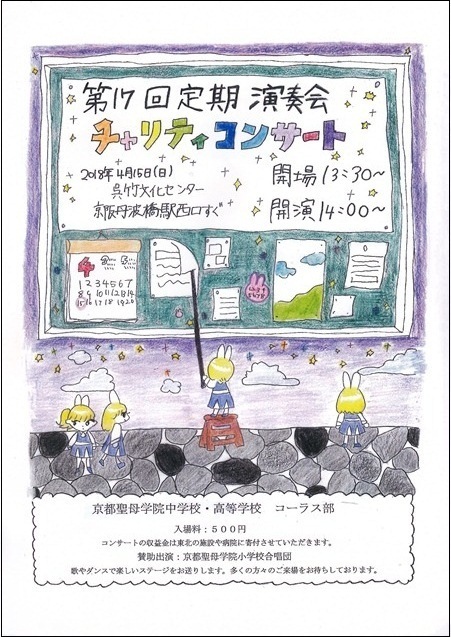 第17回定期演奏会
チャリティコンサート
2018年4月15日(日)
呉竹文化センター
京阪丹波橋駅西口すぐ
開場13:30～
開演14:00～
1 2 3 4 5 6 7
8 9 10 11 12 13 14
15 16 17 18 19 20
京都聖母学院中学校・高等学校 コーラス部
入場料：５００円
コンサートの収益金は東北の施設や病院に寄付させていただきます。
賛助出演：京都聖母学院小学校合唱団
歌やダンスで楽しいステージをお送りします。多くの方々のご来場をお待ちしております。